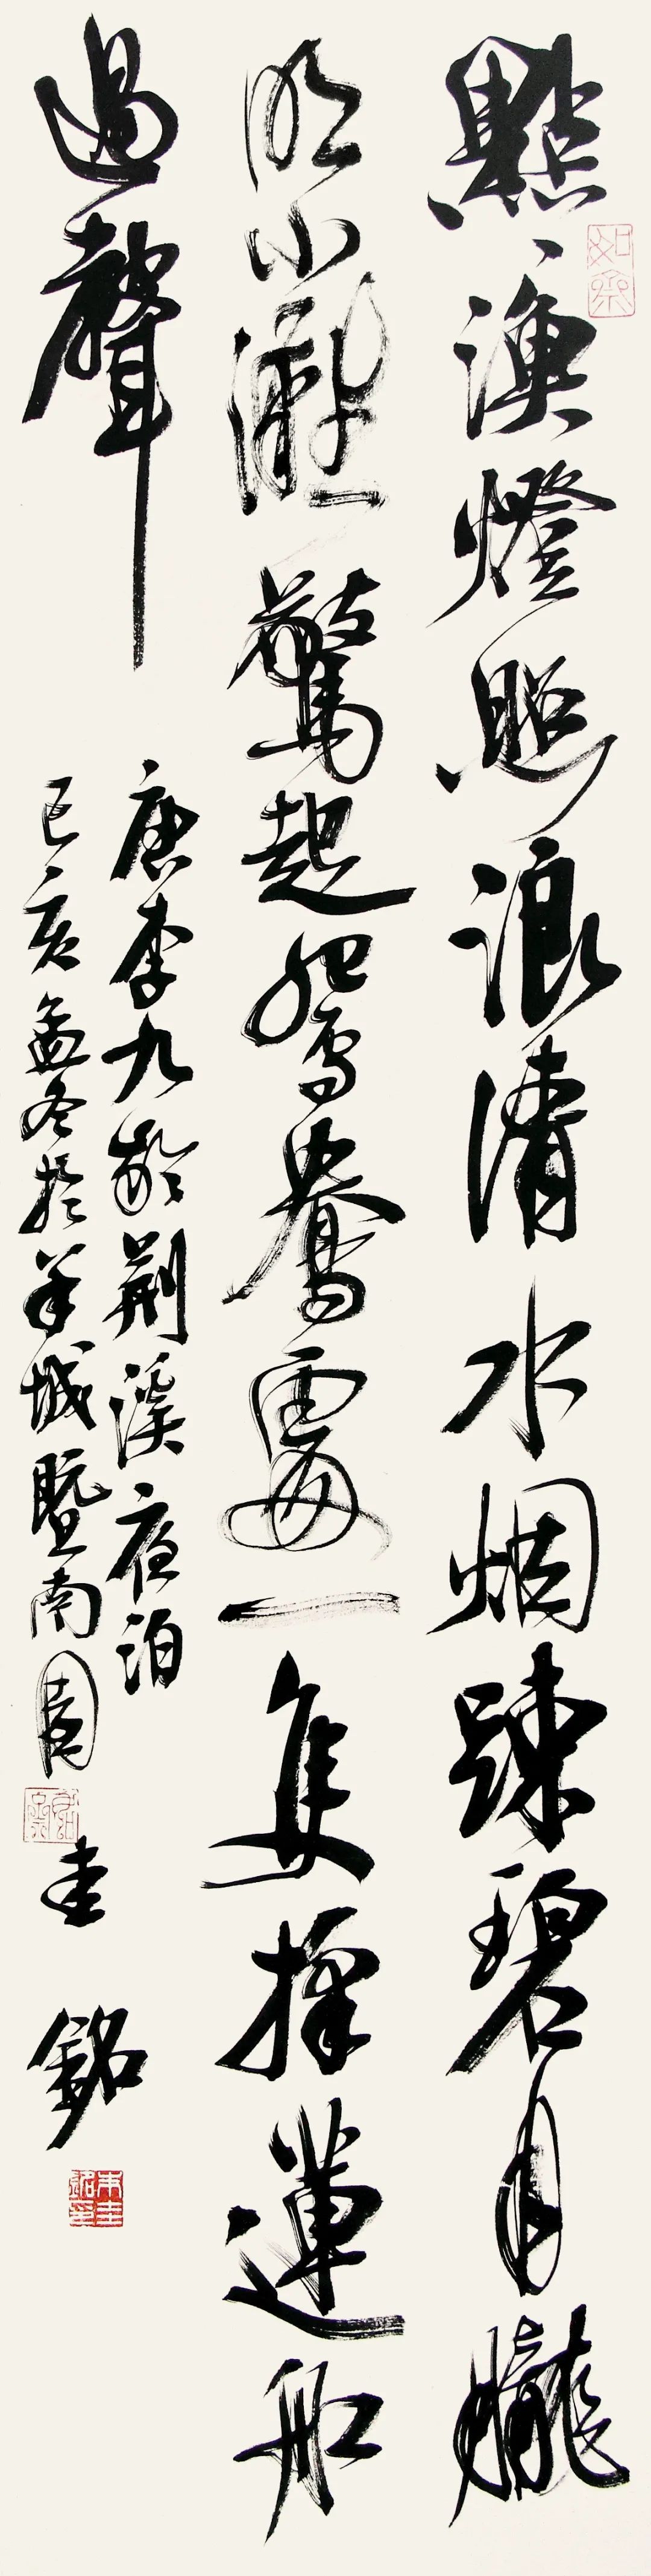 點漁燈照浪清水烟踈碧月朧
明小灘驚起鴛鴦處一隻採蓮船
過聲
唐李九齡荆溪夜泊
己亥孟冬於羊城暨南園
圭銘
如意